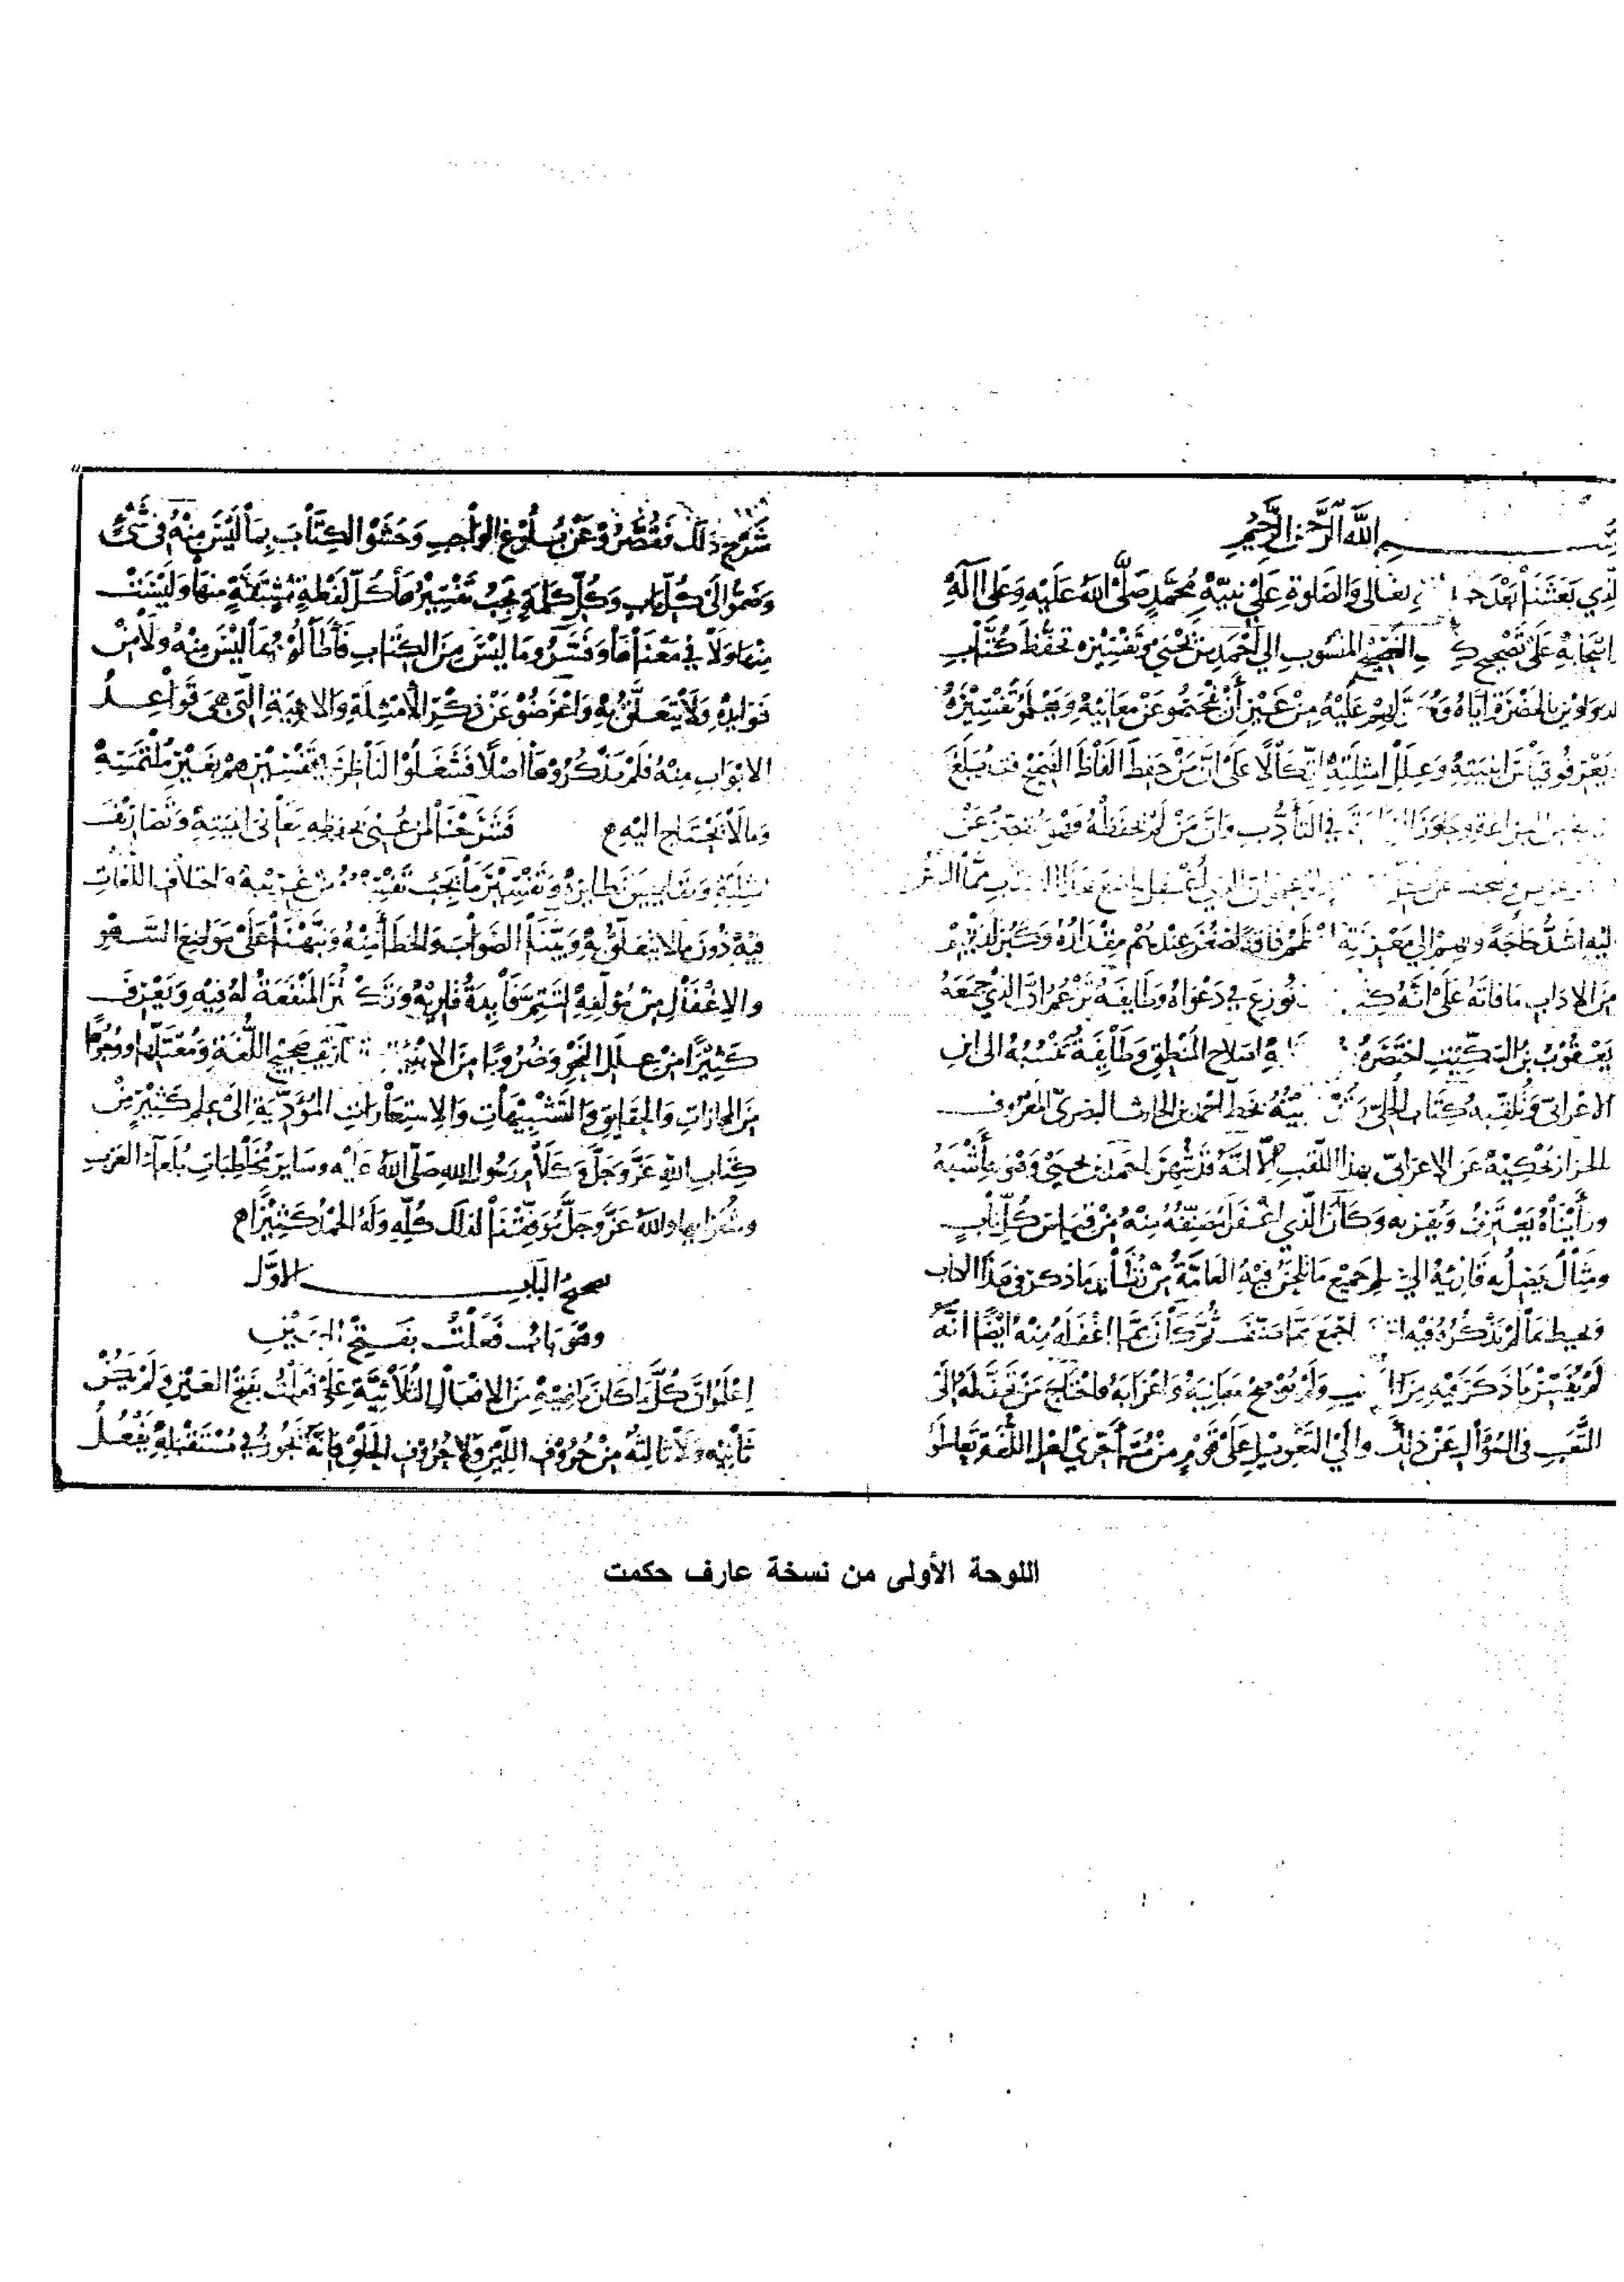 بسم الله الرحمن الرحيم
الذي بعثنا بعد تعالى والصلوة على نبيه محمد صلى الله عليه وعلى آله
على تصحيح الفصيح المنسوب الى احمد بن يحيى وتفسيره تحفظ كتاب
بالحضرة اياه عليه من غير أن يفحصوا عن معانيه ومعرفة تفسيره
ابنيته وعلل امثلته اتكالا على ان من حفظ الفاظ الفصيح فقد بلغ
البراعة وجاوز في التأدب وان من لم يحفظه فهو مقصر عن
اليه اشد حاجة وهم الى معرفته فاقة لصغر عندهم مقداره وكبر لديهم
من الاداب ما فاته على انه نوزع في دعواه وطايفة تزعم ان الذي جمعه
يعقوب بن السكيت اختصره اصلاح المنطق وطايفة تنسبه الى ابن
الاعرابي وتلقبه كتاب الحلى بخط احمد بن الحارث البصري المعروف
الخراز يحكيه عن ابن الاعرابي بهذا اللقب الا انه قد شهر احمد بن يحيى
ورأيناه يعترف ويقر به وكان الذي اغفل مصنفه منه من قياس كل باب
ومثال يصل به قاريه الى علم جميع ما تلحن فيه العامة من نظاير ما ذكر في هذا الكتاب
ويحيط بما لم يذكره فيه اجمع مما صنف ثم كان مما اغفله منه ايضا انه
لم يفسر ما ذكر فيه من الغريب ولم يوضح معانيه واعرابه فاحتاج من تحفظه الى
التعب في السؤال عن ذلك والى التعويل على قوم من متأخري اهل اللغة تعاطوا
شرح ذلك فقصروا عن بلوغ الواجب وحشوا الكتاب بما ليس منه في شيء
وضموا الى كل باب وكل كلمة يجب تفسيرها كل لفظة مشتقة منها وليست
منها ولا في معناها وفسروا ما ليس من الكتاب فأطالوا بما ليس منه ولا من
فوايده ولا يتعلق به واعرضوا عن ذكر الامثلة والابنية التي هي قواعد
الابواب منه فلم يذكروها اصلا فشغلوا الناظر في تفسيرهم بغير ملتمسه
وما لا يحتاج اليه فشرحنا لمن عني بحفظه معاني ابنيته وتصاريف
امثلته ومقاييس نظايره وتفسير ما يجب تفسيره من غريبه واختلاف اللغات
فيه دون ما لا يتعلق به وبينا الصواب والخطأ منه ونبهنا على مواضع السهو
والاغفال من مؤلفه لتتم فايدة قاريه وتكثر المنفعة له فيه ويعرف
كثيرا من علل النحو وضروبا من الابنية صحيح اللغة ومعتلها ووجوها
من المجازات والحقايق والتشبيهات والاستعارات المؤدية الى علم كثير من
كتاب الله عز وجل وكلام رسول الله صلى الله عليه وساير مخاطبات بلغاء العرب
وشعرايها والله عز وجل موفقنا لذلك كله وله الحمد كثيرا
تصحيح الباب الاول
وهو باب فعلت بفتح العين
اعلم ان كل ما كان ماضيه من الافعال الثلاثية على فعلت بفتح العين ولم يكن
ثانيه ولا ثالثه من حروف اللين ولا حروف الحلق فانه يجوز في مستقبله يفعل
اللوحة الأولى من نسخة عارف حكمت